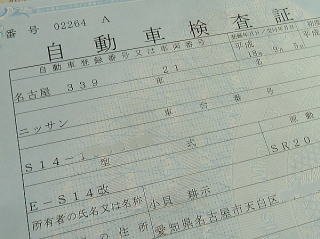 番号 02264 A
自動車検査証
自動車登録番号又は車両番号
平成
18年 9月 5日
名古屋 339 21
車 名
ニッサン
車台番号
S14-1
型式
SR20
E-S14改
所有者の氏名又は名称
小貝 耕示
愛知県名古屋市天白区
住所